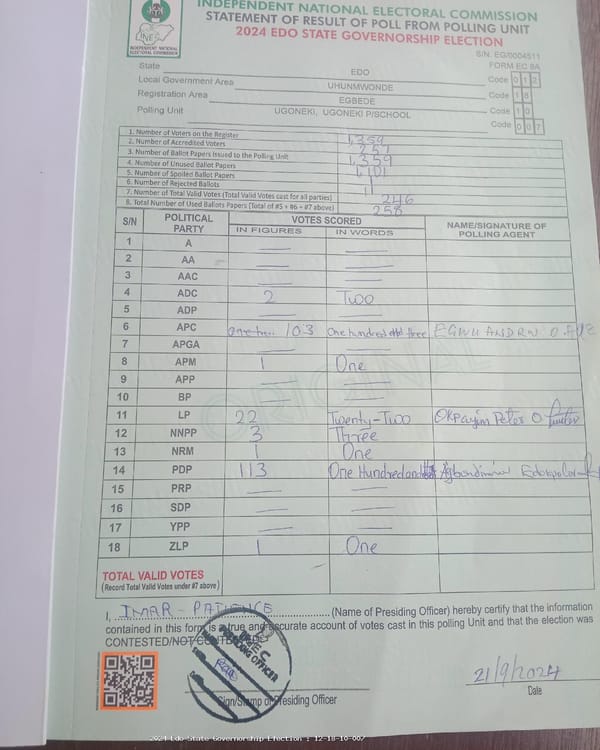 INDEPENDENT NATIONAL ELECTORAL COMMISSION
STATEMENT OF RESULT OF POLL FROM POLLING UNIT
2024 EDO STATE GOVERNORSHIP ELECTION
INEC
INDEPENDENT NATIONAL ELECTORAL COMMISSION
S/N. EG/0004511
FORM EC 8A
State EDO Code 0 1 2
Local Government Area UHUNMWONDE Code 1 8
Registration Area EGBEDE Code 1 0
Polling Unit UGONEKI, UGONEKI P/SCHOOL Code 0 0 7
1. Number of Voters on the Register 1,359
2. Number of Accredited Voters 257
3. Number of Ballot Papers Issued to the Polling Unit 1,359
4. Number of Unused Ballot Papers 1,101
5. Number of Spoiled Ballot Papers 1
6. Number of Rejected Ballots 11
7. Number of Total Valid Votes (Total Valid Votes cast for all parties) 246
8. Total Number of Used Ballots Papers (Total of #5 + #6 + #7 above) 258
S/N POLITICAL PARTY VOTES SCORED NAME/SIGNATURE OF POLLING AGENT
IN FIGURES IN WORDS
1 A
2 AA
3 AAC
4 ADC 2 Two
5 ADP
6 APC 103 One hundred and three EGWU ANDREW O
7 APGA
8 APM 1 One
9 APP
10 BP
11 LP 22 Twenty-Two Peter O
12 NNPP 3 Three
13 NRM 1 One
14 PDP 113 One Hundred and
15 PRP
16 SDP
17 YPP
18 ZLP 1 One
ORIGINAL
TOTAL VALID VOTES
(Record Total Valid Votes under #7 above)
I, IMAR - PATIENCE (Name of Presiding Officer) hereby certify that the information
contained in this form is a true and accurate account of votes cast in this polling Unit and that the election was
CONTESTED/NOT CONTESTED
INEC
PRESIDING OFFICER
21/9/2024
Sign/Stamp of Presiding Officer Date
2024 Edo State Governorship Election : 12-18-10-007